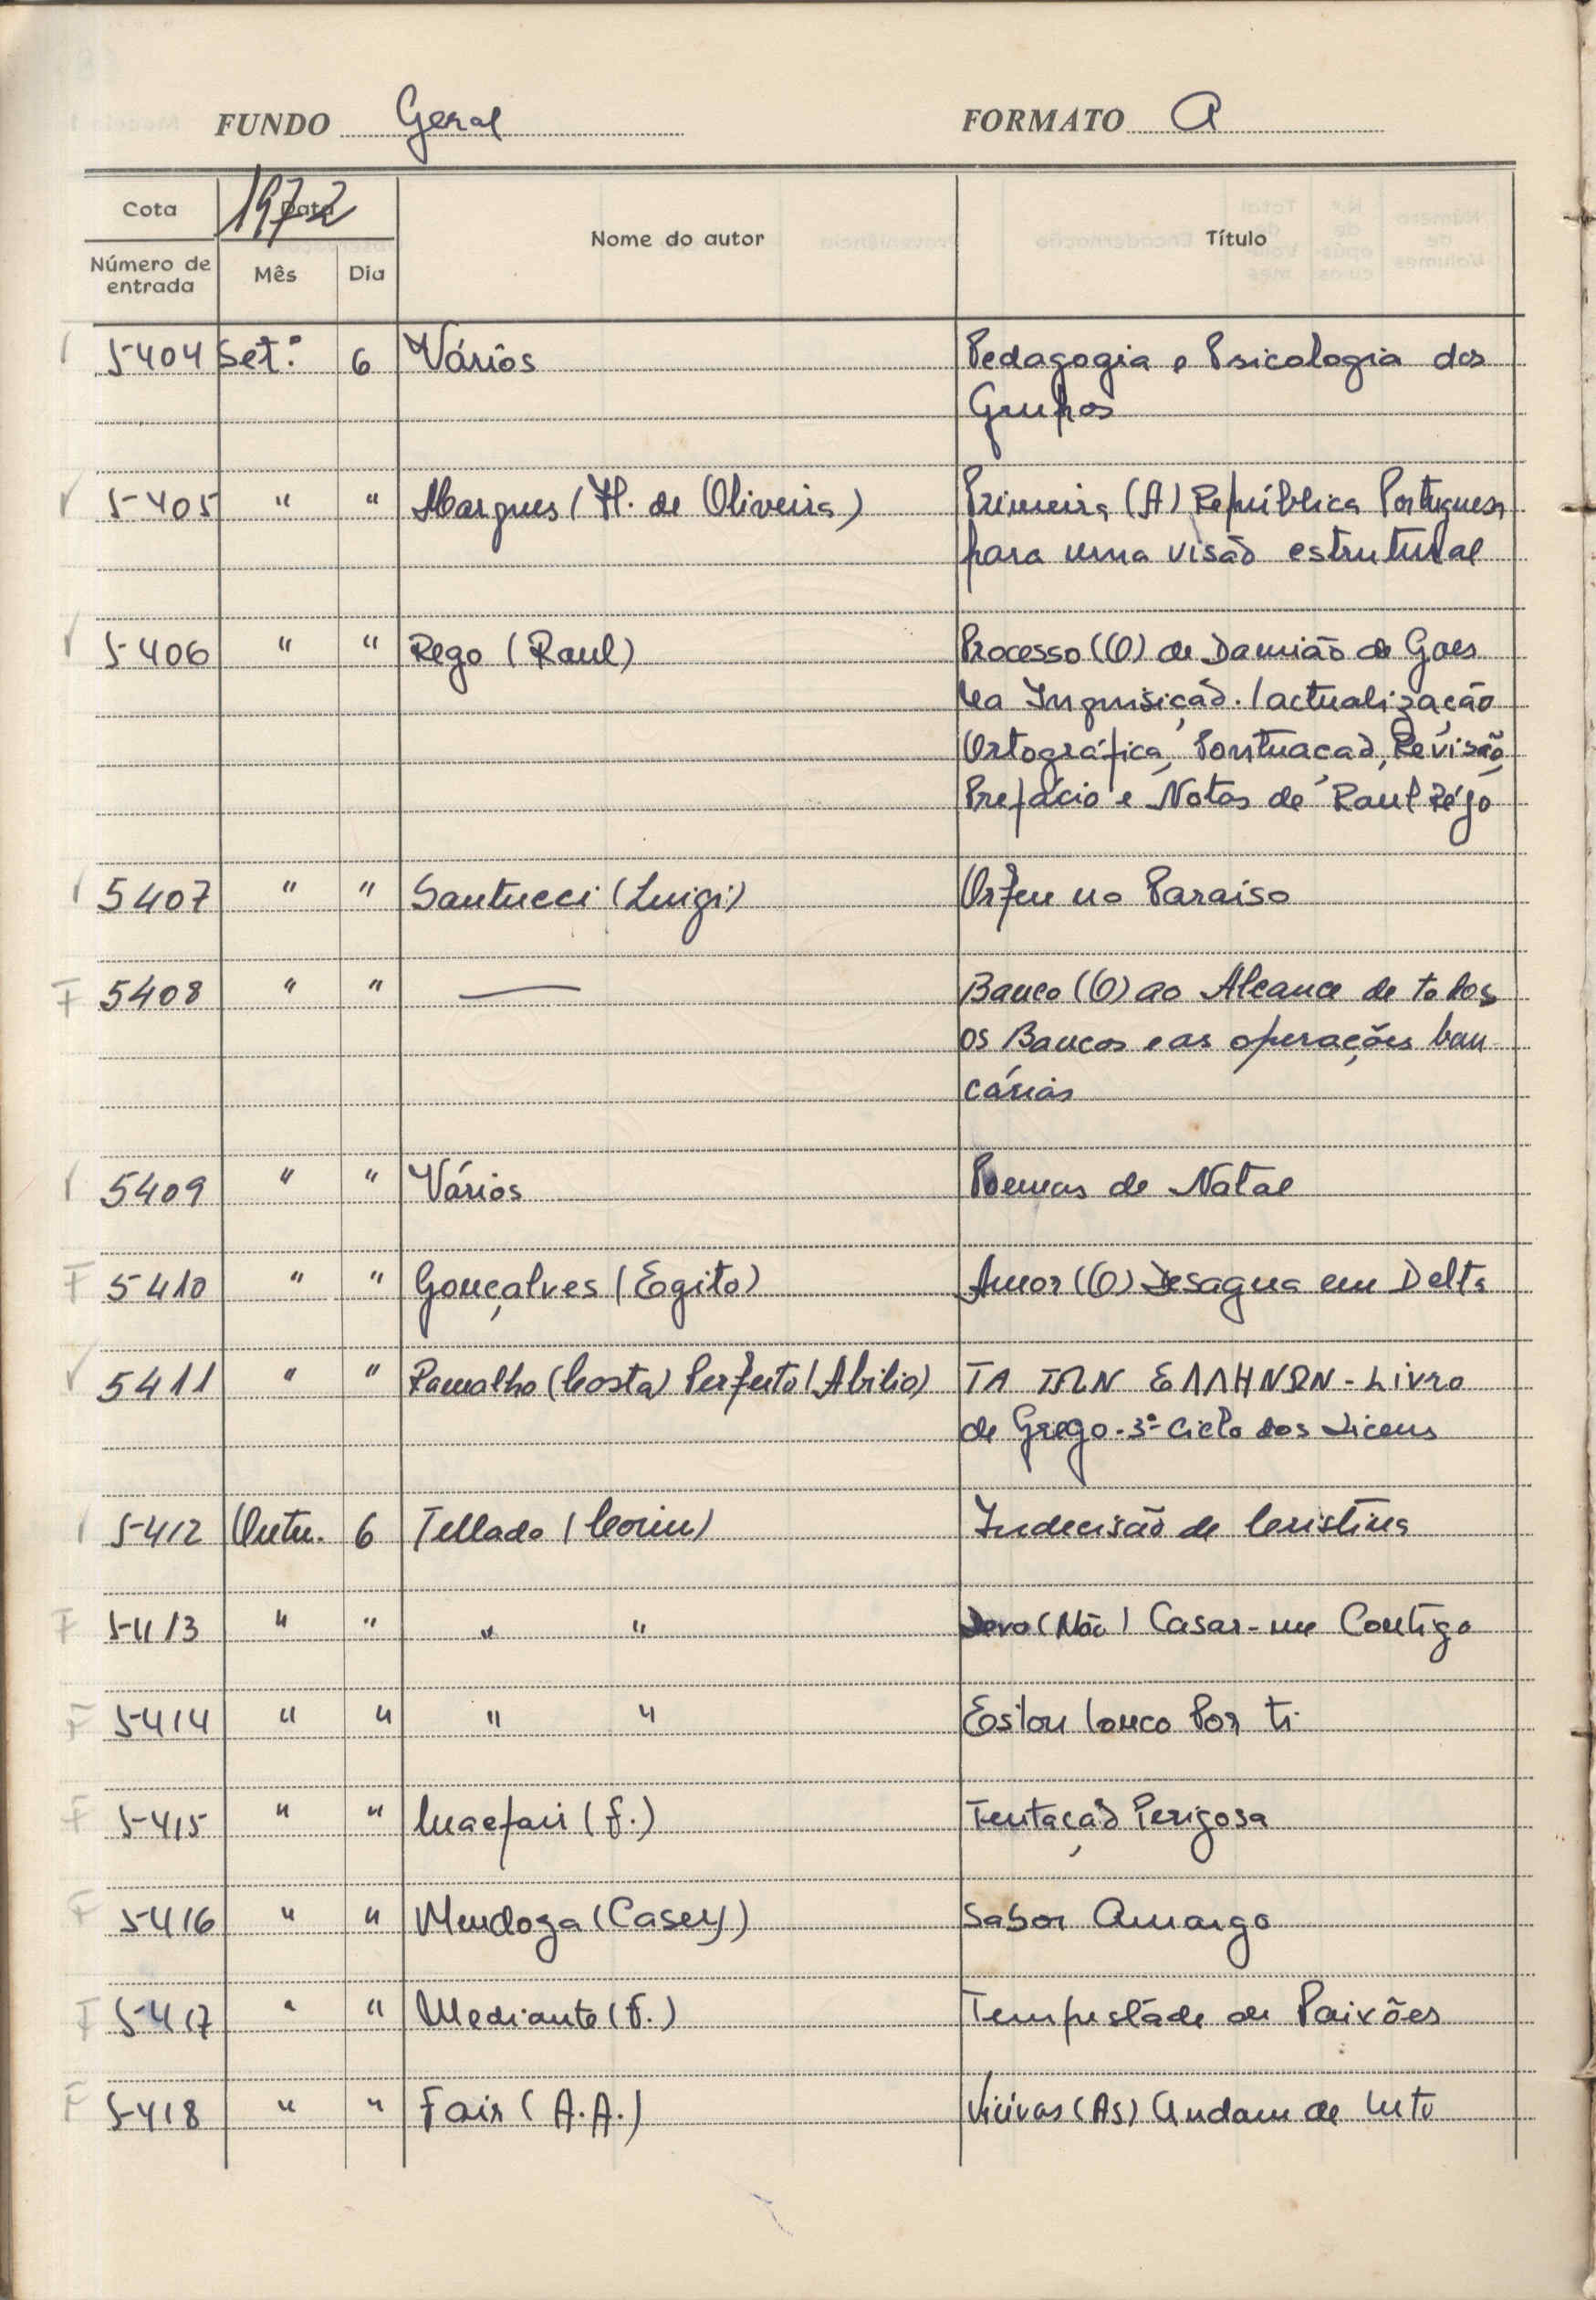 FUNDO Geral FORMATO A
Cota 1972 Data Nome do autor Título
Número de entrada Mês Dia
5404 Set.º 6 Vários Pedagogia e Psicologia dos
Grupos
5405 " " Marques (H. de Oliveira) Primeira (A) República Portuguesa
para uma visão estrutural
5406 " " Rego (Raul) Processo (O) de Damião de Goes
na Inquisição. (actualização
Ortográfica, Pontuação, Revisão,
Prefácio e Notas de Raul Rêgo
5407 " " Santucci (Luigi) Orfeu no Paraiso
5408 " " — Banco (O) ao Alcance de todos
os Bancos e as operações ban
cárias
5409 " " Vários Poemas de Natal
5410 " " Gonçalves (Egito) Amor (O) Desagua em Delta
5411 " " Ramalho (Costa) Perfeito (Abilio) ΤΑ ΤΩΝ ΕΛΛΗΝΩΝ - Livro
de Grego - 3º Ciclo dos Liceus
5412 Outu. 6 Tellado (Corin) Indecisão de Cristina
5413 " " " " Devo (Não) Casar-me Contigo
5414 " " " " Estou louco Por ti
5415 " " Macfair (f.) Tentação Perigosa
5416 " " Mendoza (Casey) Sabor Amargo
5417 " " Mediante (f.) Tempestade de Paixões
5418 " " Fair (A.A.) (As) Andam de luto